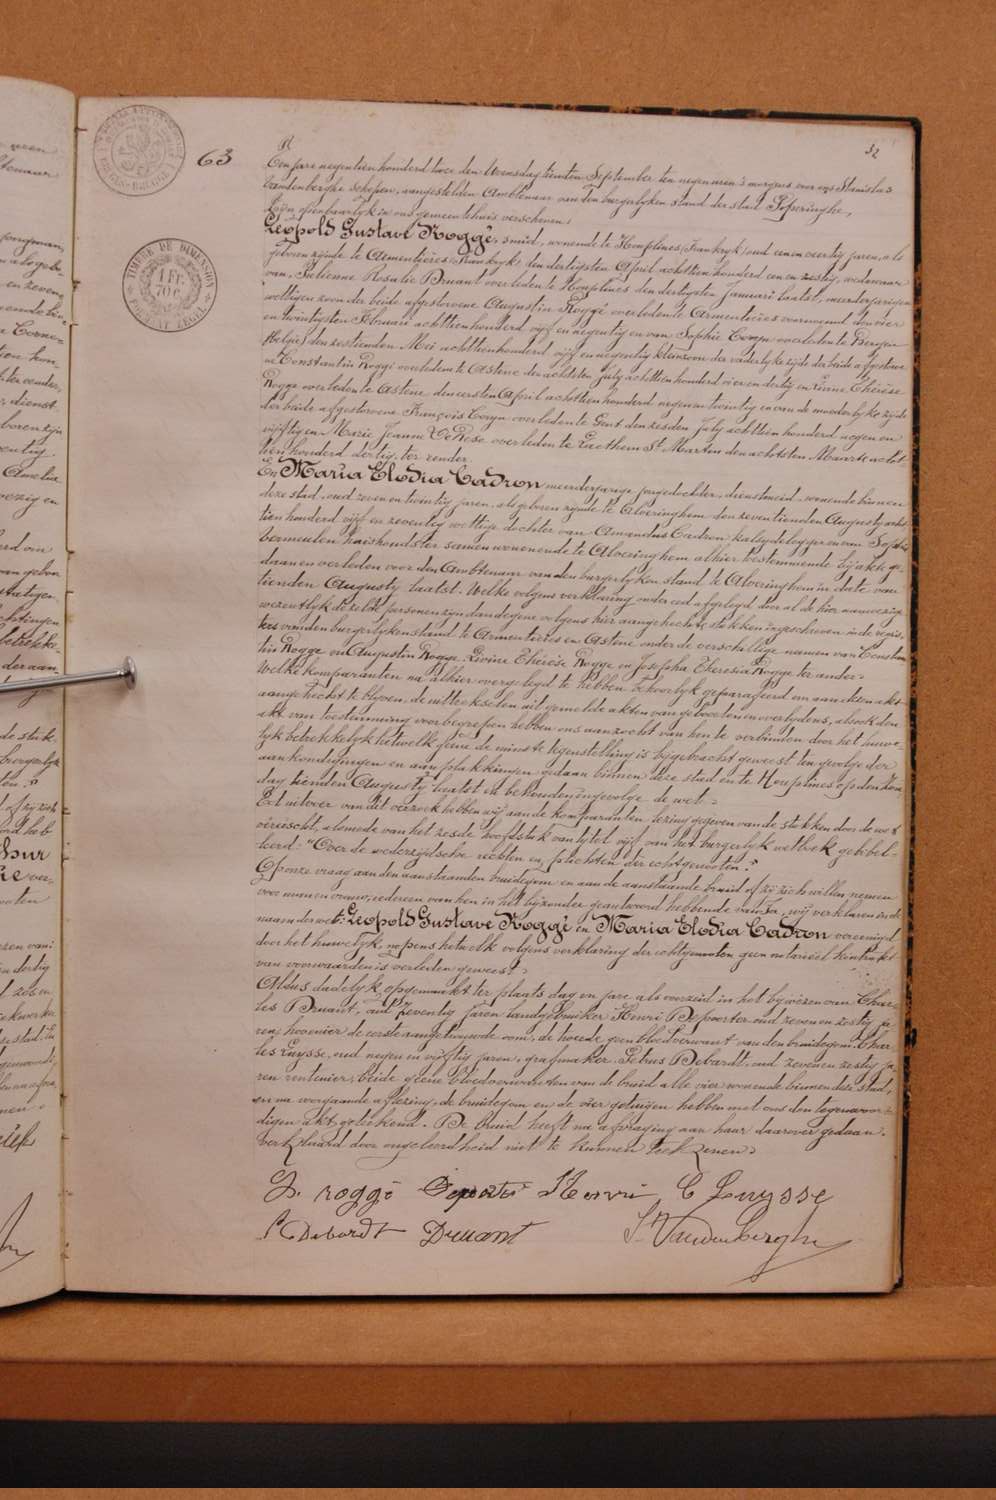 32
63
TIMBRE DE DIMENSION
1 FR.
70 C.
FORMAAT ZEGEL
R
Ten jare negentien honderd twee den Woensdag tienden September ten negen uren 's morgens voor ons Stanislas
Vandenberghe schepen, aangestelden Ambtenaar van den burgerlyken stand der stad Poperinghe,
zyn openbaarlyk in ons gemeentehuis verschenen:
Leopold Gustave Roggé, smid, wonende te Houplines (Frankryk) oud een en veertig jaren, als
geboren zynde te Armentieres (Frankryk) den dertigsten April achttien honderd een en zestig, weduwaar
van Julienne Rosalie Druant overleden te Houplines den dertigsten Januari laatst, meerderjarigen
wettigen zoon der beide afgestorvene Augustin Roggé overleden te Armentieres voornoemd den vier
en twintigsten Februari achttien honderd vyf en negentig en van Sophie Coryn overleden te Bergen
(Belgie) den zestienden Mei achttienhonderd vyf en negentig kleinzoon der vaderlyke zyde der beide afgestorve
ne Constantin Roggé overleden te Astene den achtsten July achttien honderd vier en dertig en Livine Thérèse
Rogge overleden te Astene den eersten April achttien honderd negen en twintig en van de moederlyke zyde
der beide afgestorvene François Coryn overleden te Gent den zesden July achttien honderd negen en
vyftig en Marie Jeanne De Rese overleden te Laethem St Martin den achtsten Maart acht-
tien honderd dertig, ter eender.
En Maria Elodia Cadron meerderjarige jongedochter, dienstmeid, wonende binnen
deze stad, oud zeven en twintig jaren, als geboren zynde te Alveringhem den zeventienden Augusty acht
tien honderd vyf en zeventig wettige dochter van Amandus Cadron kalsydelegger en van Sophie
Vermeulen huishoudster samen wonende te Alveringhem alhier toestemmende by akte ge-
daan en verleden voor den Ambtenaar van den burgerlyken stand te Alveringhem in date van
tienden Augusty laatst. Welke volgens verklaring onder eed afgelegd door al de hier aanwezige
wezentlyk dezelfde personen zyn dan degene volgens hier aangehechte stukken ingeschreven in de regis-
ters van den burgerlyken stand te Armentieres en Astene onder de verschillige namen van Constan
tin Rogge en Augustin Rogge, Livine Thérèse Rogge en Josepha Theresia Rogge ter ander.
Welke komparanten na alhier overgelegd te hebben behoorlyk geparafeerd om aan dezen akt
aangehecht te blyven, de uittreksels uit gemelde akten van geboorten en overlydens, alsook den
akt van toestemming voorbegrepen hebben ons aanzocht van hen te verbinden door het huwe-
lyk betrekkelyk hetwelk geene de minste tegenstelling is bygebracht geweest ten gevolge der
aankondigingen en aanplakkingen gedaan binnen deze stad en te Houplines op den Zon
dag tienden Augusty laatst en behouden ingevolge de wet.
Ert uit voer van dit verzoek hebben wy aan de komparanten lezing gegeven van de stukken door de wet
vereischt, alsmede van het zesde hoofdstuk van tytel vyf van het burgerlyk wetboek gebobel-
teerd: "Over de wederzydsche rechten en plichten der echtgenooten."
Op onze vraag aan den aanstaanden bruidegom en aan de aanstaande bruid of zy zich willen nemen
voor man en vrouw, iedereen van hen in het byzonder geantwoord hebbende van Ja, wy verklaren in de
naam der wet: Leopold Gustave Roggé en Maria Elodia Cadron vereenigd
door het huwelyk, nopens hetwelk volgens verklaring der echtgenooten geen notarieel kontrakt
van voorwaarden is verleden geweest.
Aldus dadelyk opgemaakt ter plaats dag en jare als overzeid in het bywezen van Char-
les Druant, oud zeventig jaren landgebruiker Henri Depoorter oud zeven en zestig ja
ren, hovenier de eerste aangetrouwde oom, de tweede geen bloedverwant van den bruidegom Char
les Luysse, oud negen in vyftig jaren, grafmaker. Petrus Debardt, oud zeven en zestig ja
ren rentenier, beide geene bloedverwanten van de bruid alle vier wonende binnen deze stad,
en na voorgaande aflezing, de bruidegom en de vier getuigen hebben met ons den tegenwoor-
digen akt geteekend. De bruid heeft na afvraging aan haar daarover gedaan
verklaard door ongeleerdheid niet te kunnen teekenen.
L. roggé Depoorter Henri C Luysse
P Debardt Druant St Vandenberghe